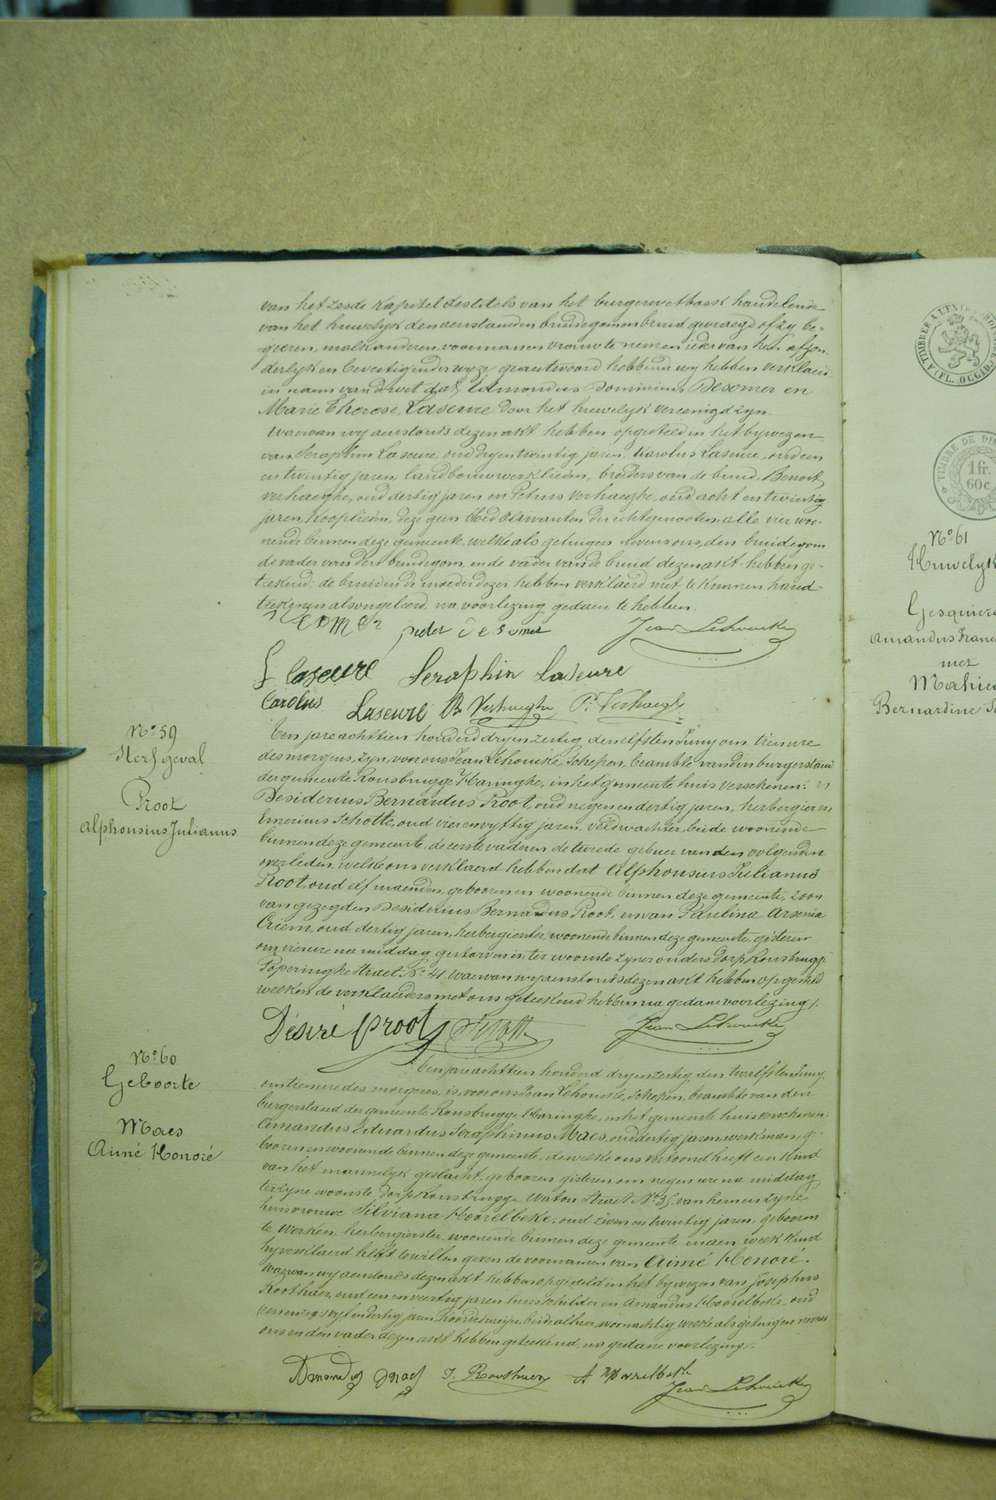 van het zesde kapittel des titels van het burgerwetboek handelende
van het huwelijk den aenstaenden bruidegom en bruid gevraegd of zy be-
geeren, malkanderen voor man en vrouw te nemen ieder van hun afzon
derlyk en bevestigender wyze geantwoord hebbende wy hebben verklaerd
in naam van de wet dat Amondus Dominicus Desomer en
Marie Therese Laseure door het huwelyk vereenigd zyn.
Waervan wy aenstonds dezen akt hebben opgesteld in het bywezen
van Seraphin Laseure, oud dryentwintig jaren, Karolus Laseure, oud een
en twintig jaren, landbouwwerklieden, broeders van de bruid, Benoit
Verhaeghe, oud dertig jaren en Petrus Verhaeghe, oud acht en twintig
jaren, kooplieden, deze geen bloedverwanten der echtgenooten alle vier woo-
nende binnen deze gemeente, welke als getuigen nevens ons, den bruidegom
de vader van den bruidegom, en de vader van de bruid dezen akt hebben ge-
teekend, de bruid en de moeder dezer hebben verklaerd niet te kunnen hand
teekenen als ongeleerd, na voorlezing gedaen te hebben.
peeter desomer Jean Lehoucke
Laseure Seraphin Laseure
Carolus Laseure B Verhaeghe P. Verhaeghe
N.º 59
Sterfgeval
Proot
Alphonsius Julianus
Een jare achttien honderd dryenzestig, den elfsten Juny om tien ure
des morgens, zyn voor ons Jean Lehoucke, Schepen, beambte van den burgerstand
der gemeente Rousbrugge Haringhe, in het gemeente huis verschenen:
Desiderius Bernardus Proot, oud negen en dertig jaren, herbergier en
Emerius Schotte, oud vier en vyftig jaren, veldwachter, beide woonende
binnen deze gemeente, de eerste vader en de tweede gebuer van den volgenden
overleden, welke ons verklaerd hebben dat Alphonsius Julianus
Proot, oud elf maenden, geboren en woonende binnen deze gemeente, zoon
van gezegden Desiderius Bernardus Proot, en van Paulina Arsenia
oud dertig jaren, herbergierster, woonende binnen deze gemeente, gisteren
om vier ure na middag gestorven is ter woonste zyner ouders Dorp Rousbrugge
Poperinghe Straet, N.º 41 waervan wy aenstonds dezen akt hebben opgesteld
welken de verklaerders met ons geteekend hebben na gedane voorlezing.
Désiré Proot Schotte Jean Lehoucke
N.º 60
Geboorte
Maes
Aimé Honoré
Een jare achttien honderd dryenzestig, den twelfsten Juny
om tien ure des morgens, is voor ons Jean Lehoucke, Schepen, beambte van den
burgerstand der gemeente Rousbrugge Haringhe, in het gemeente huis verschenen:
Amandus Eduardus Seraphinus Maes, oud dertig jaren, werkman, ge-
boren en woonende binnen deze gemeente, dewelke ons vertoond heeft een kind
van het mannelyk geslacht, geboren gisteren om negen ure na middag
ter zyne woonste Dorp Rousbrugge Waton Straet N.º 35, van hem en zyne
huisvrouwe Silviana Hoorelbeke, oud zeven en twintig jaren, geboren
te Werken, herbergierster, woonende binnen deze gemeente, en aen welk kind
hy verklaerd heeft te willen geven de voornamen van Aimé Honoré.
Waervan wy aenstonds dezen akt hebben opgesteld in het bywezen van Josephus
Roosthaer, oud een en veertig jaren, huisschilder en Amandus Hoorelbeke, oud
vyf en dertig jaren, beide alhier woonachtig welke als getuigen nevens
ons en den vader dezen akt hebben geteekend, na gedane voorlezing.
Amandus Maes J. Roosthaer A Hoorelbeke
Jean Lehoucke
TIMBRE DE
1 fr.
60 c.
N.º 61
Huwelyk
Gesquiere
Amandus Franc
met
Mahieu
Bernardine